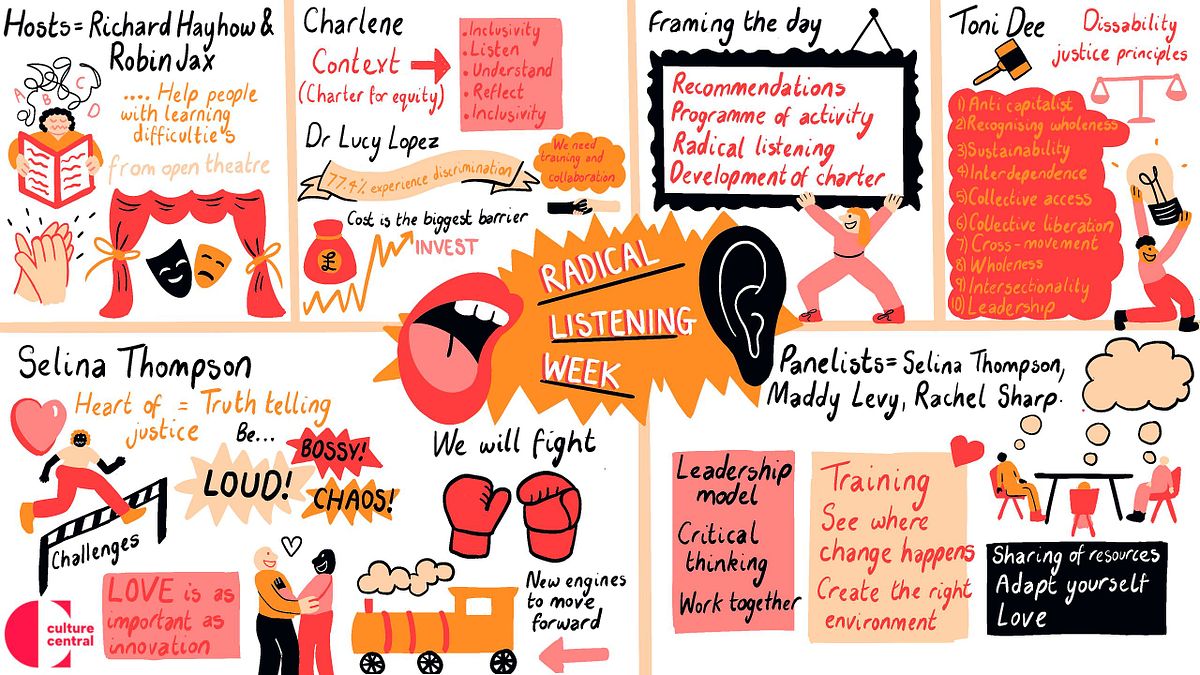 Hosts = Richard Hayhow &
Robin Jax
A B C D
.... Help people
with learning
difficultie's
from open theatre
Charlene
Context
(Charter for equity)
• Inclusivity
• Listen
• Understand
• Reflect
• Inclusivity
Dr Lucy Lopez
77.4% experience discrimination
We need
training and
collaboration
Cost is the biggest barrier
£
INVEST
Framing the day
Recommendations
Programme of activity
Radical listening
Development of charter
Toni Dee
Dissability
justice principles
1) Anti capitalist
2) Recognising wholeness
3) Sustainability
4) Interdependence
5) Collective access
6) Collective liberation
7) Cross-movement
8) Wholeness
9) Intersectionality
10) Leadership
RADICAL
LISTENING
WEEK
Selina Thompson
Heart of = Truth telling
justice
Be...
LOUD!
BOSSY!
CHAOS!
Challenges
LOVE is as
important as
innovation
culture
central
We will fight
New engines
to move
forward
Panelists = Selina Thompson,
Maddy Levy, Rachel Sharp.
Leadership
model
Critical
thinking
Work together
Training
See where
change happens
Create the right
environment
Sharing of resources
Adapt yourself
Love